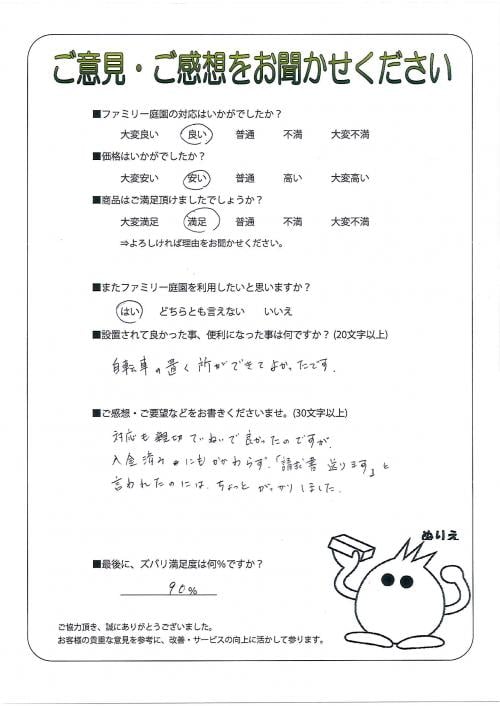 ご意見・ご感想をお聞かせください
■ファミリー庭園の対応はいかがでしたか？
大変良い 良い 普通 不満 大変不満
■価格はいかがでしたか？
大変安い 安い 普通 高い 大変高い
■商品はご満足頂けましたでしょうか？
大変満足 満足 普通 不満 大変不満
⇒よろしければ理由をお聞かせください。
■またファミリー庭園を利用したいと思いますか？
はい どちらとも言えない いいえ
■設置されて良かった事、便利になった事は何ですか？(20文字以上)
自転車の置く所ができてよかったです.
■ご感想・ご要望などをお書きくださいませ。(30文字以上)
対応も親切ていねいで良かったのですが,
入金済みにもかかわらず.「請求書送ります」と
言われたのには.ちょっとがっかりしました.
ぬりえ
■最後に、ズバリ満足度は何％ですか？
90%
ご協力頂き、誠にありがとうございました。
お客様の貴重な意見を参考に、改善・サービスの向上に活かして参ります。